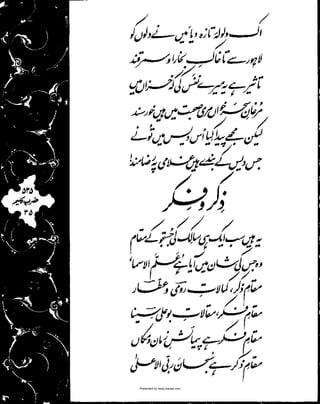 اک ولولۂ تازہ دیا میں نے دلوں کو
لاہور سے تا خاکِ بخارا و سمرقند
تاثیر ہے یہ میرے نفَس کی کہ خزاں میں
مرغانِ سحر خواں مری صحبت میں ہیں خورسند
لیکن مجھے پیدا کیا اُس دیس میں تُو نے
جس دیس کے بندے ہیں غلامی پہ رضامند!
ذکر و فکر
یہ ہیں سب ایک ہی سالک کی جستجو کے مقام
وہ جس کی شان میں آیا ہے علّم الاسما
مقامِ ذکر، کمالاتِ رومیؔ و عطّارؔ
مقامِ فکر، مقالاتِ بوعلی سیناؔ
مقامِ فکر ہے پیمائشِ زمان و مکاں
مقامِ ذکر ہے سبحان ربی الاعلیٰ
۵۳۵
ضربِ کلیم
۳۵
Presented by www.ziaraat.com